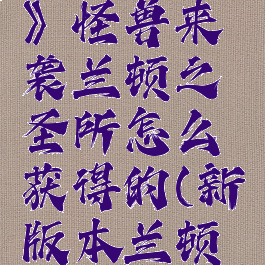 》怪兽来
袭兰顿之
圣所怎么
获得的(新
版本兰顿